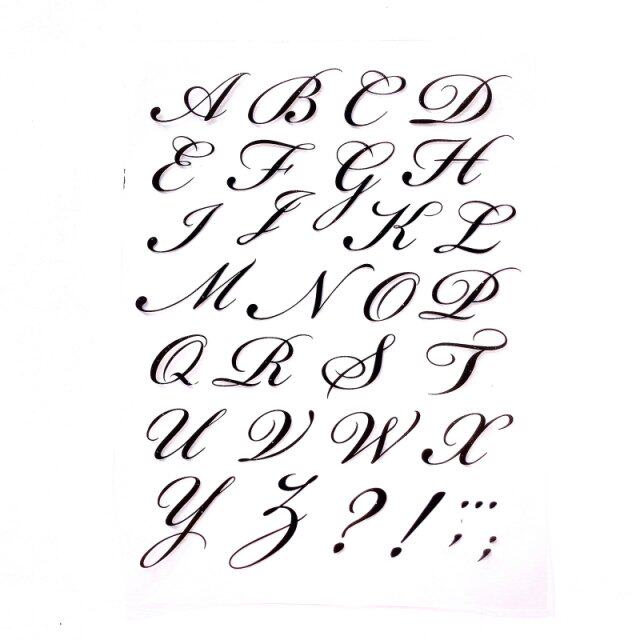 A B C D
E F G H
I J K L
M N O P
Q R S T
U V W X
Y Z ? ! ; : ;